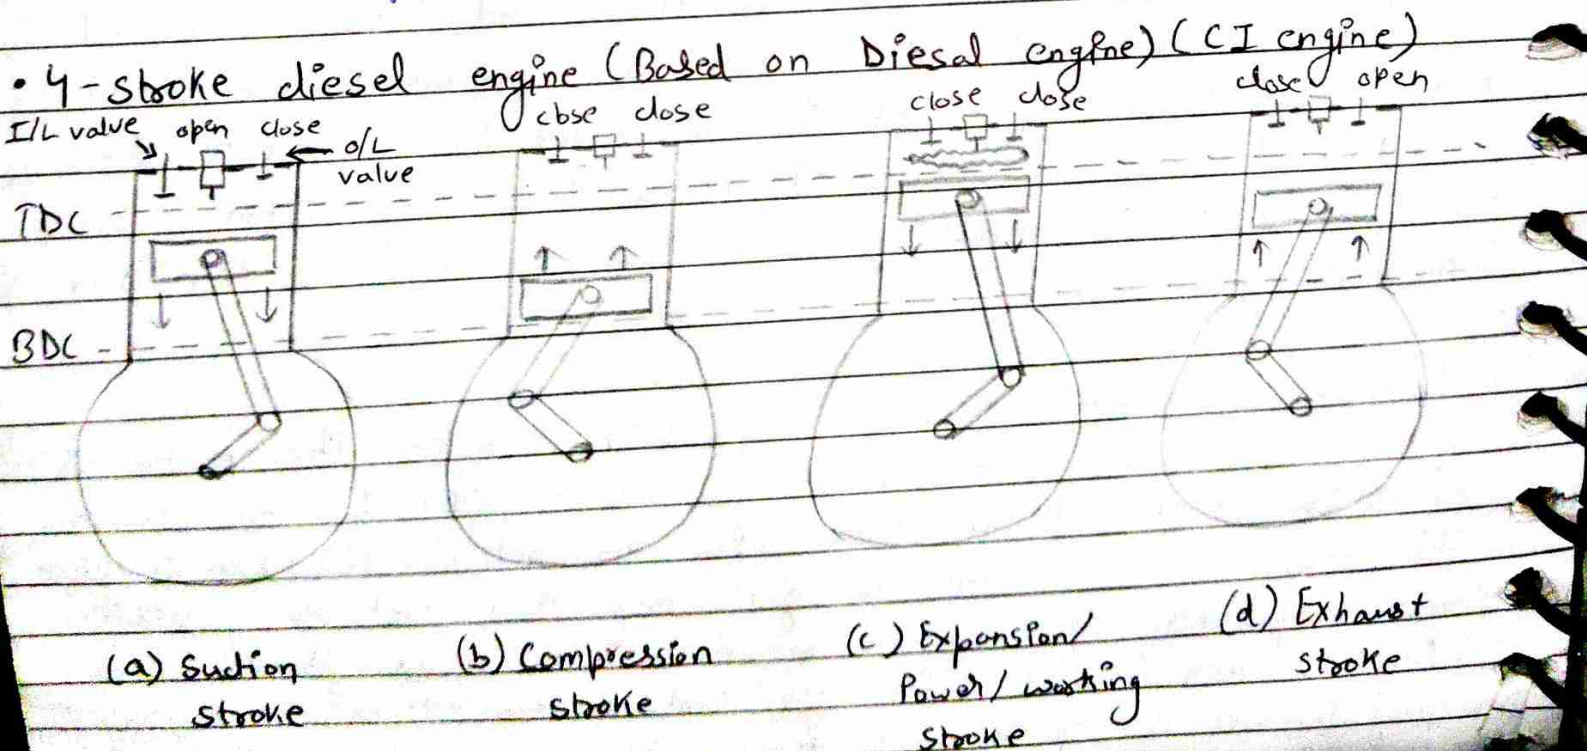 • 4-stroke diesel engine (Based on Diesal engine) (CI engine)
I/L value open close
o/L
value
close close
close close
close open
TDC
BDC
(a) Suction
stroke
(b) Compression
stroke
(c) Expansion/
Power/working
stroke
(d) Exhaust
stroke